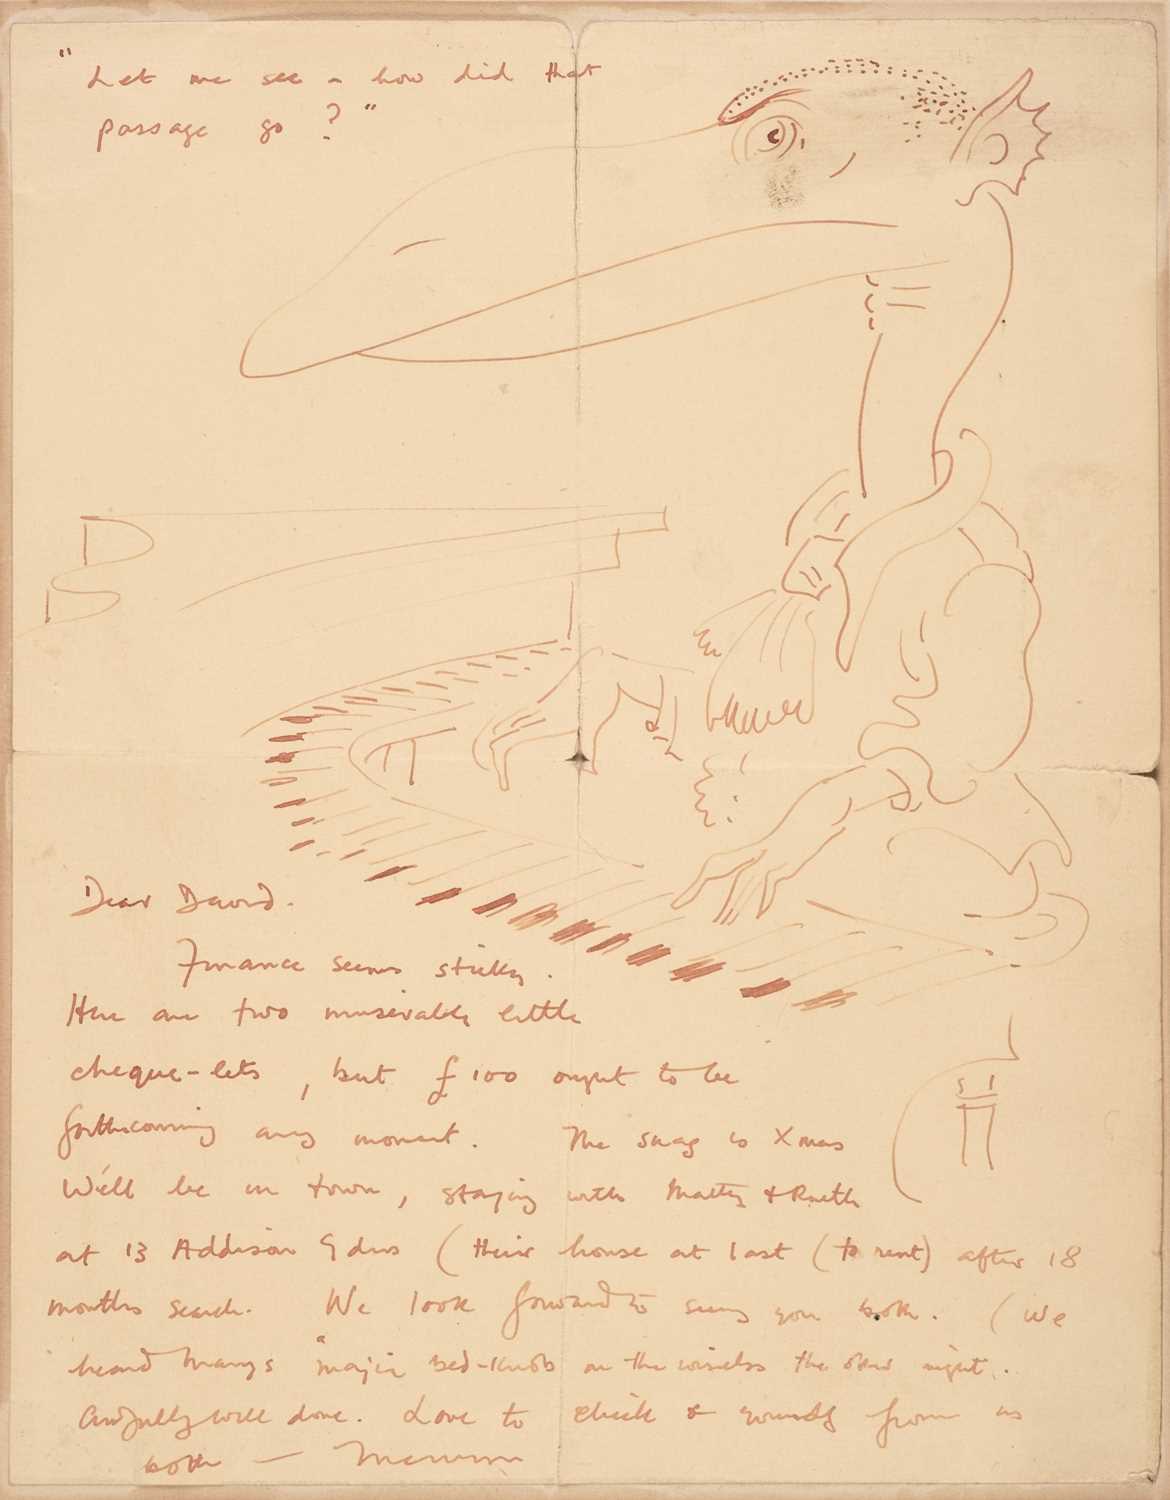 " Let me see – how did that
passage go ? "
Dear David.
Finance seems sticky.
Here are two miserable little
cheque-lets , but £100 ought to be
forthcoming any moment. The snag is Xmas
We'll be in town, staying with Matty & Ruth
at 13 Addison Gdns (their house at last (to rent) after 18
months search. We look forward to seeing you both. (We
heard Mary's "magic bed-knob on the wireless the other night.
Awfully well done. Love to & yourself from us
both — Mervyn